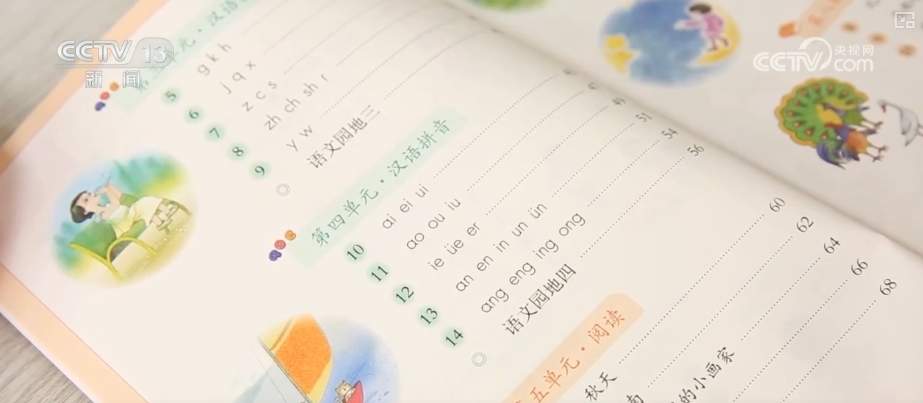 CCTV 13
新闻
央视网
CCTV.com
第三单元·汉语
5 g k h
6 j q x
7 z c s
8 zh ch sh r
9 y w
语文园地三
第四单元·汉语拼音
10 ai ei ui
11 ao ou iu
12 ie üe er 51
13 an en in un ün 54
14 ang eng ing ong 56
语文园地四
60
五单元·阅读
62
秋天 64
南 66
的小画家 68